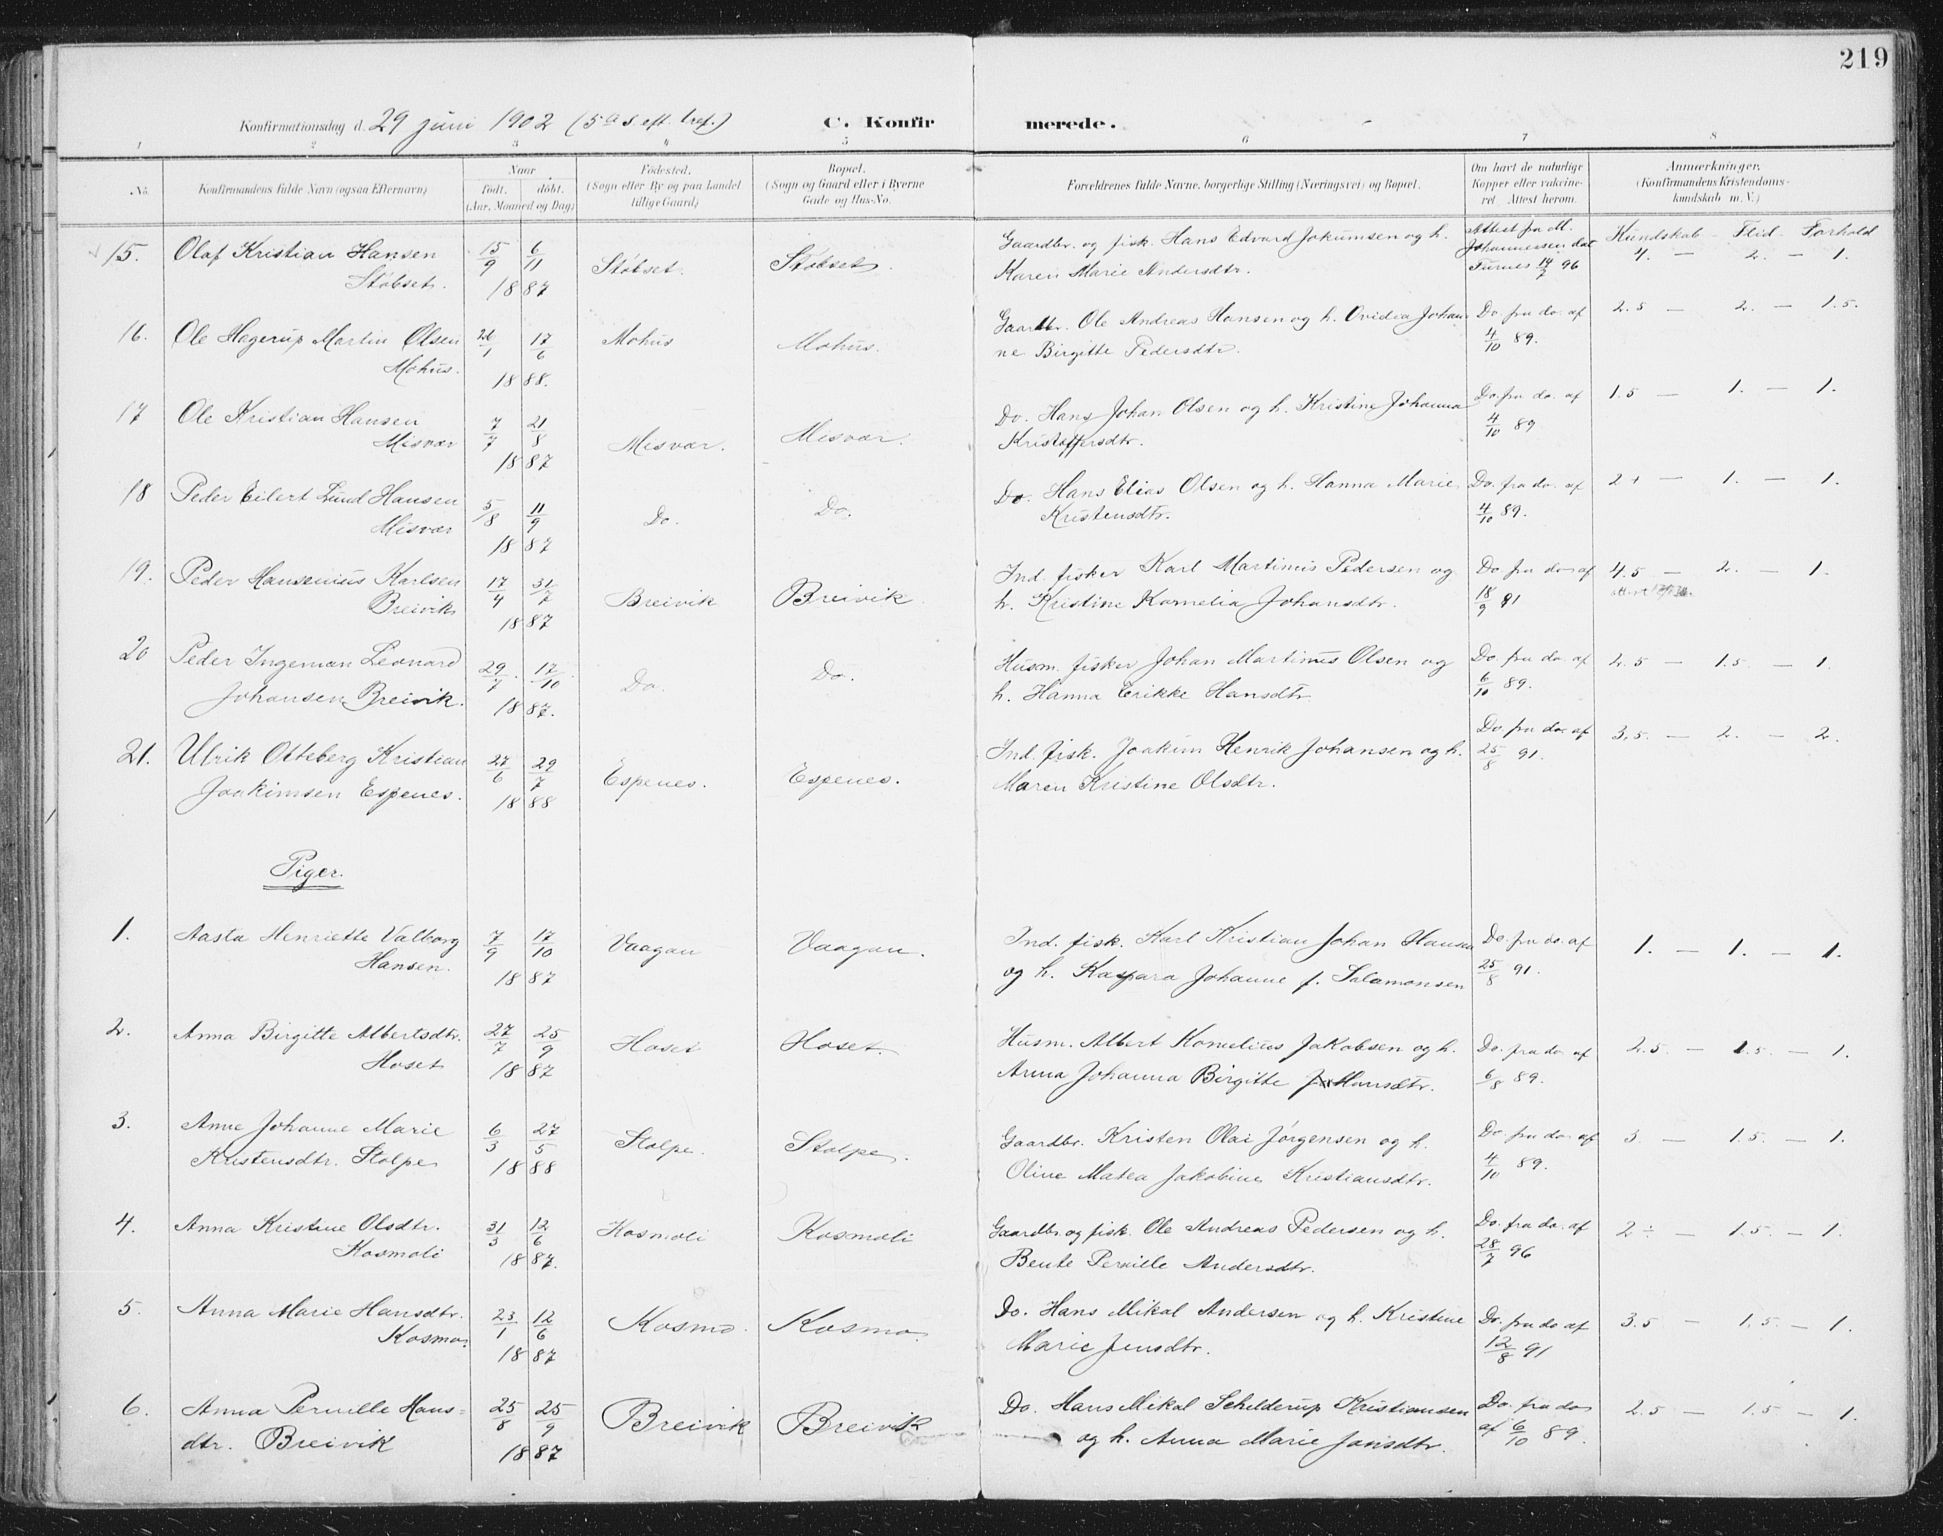 219
Konfirmationsdag d. 29 juni 1902 (5te s. eft. tref.) C. Konfir merede.
1 2 3 4 5 6 7 8
No. Konfirmandens fulde Navn (ogsaa Efternavn) Naar født. døbt. (Aar, Maaned og Dag) Fødested. (Sogn eller By og paa Landet tillige Gaard) Bopæl. (Sogn og Gaard eller i Byerne Gade og Hus-No. Forældrenes fulde Navne, borgerlige Stilling (Næringsvei) og Bopæl. Om havt de naturlige Kopper eller vakcineret. Attest herom. Anmærkninger. (Konfirmandens Kristendomskundskab m. V.)
Kundskab - Flid - Forhold
15. Olaf Kristian Hansen 15/9 6/11 Støbset. Støbset. Gaardbr. og fisk. Hans Edvard Jokumsen og h. Attest fra M. Johannessen dat. 4. — 2. — 1.
Støbset. 1887 Karen Marie Andersdtr. Furnes 14/7 96
16. Ole Hagerup Martin Olsen 26/1 17/6 Mohus Mohus. Gaardbr. Ole Andreas Hansen og h. Ovidea Johan Do. fra do. af 2.5 — 2. — 1.5.
Mohus. 1888. ne Birgitte Pedersdtr. 4/10 89.
17 Ole Kristian Hansen 7/7 21/8 Misvær. Misvær. Do. Hans Johan Olsen og h. Kristine Johanna Do. fra do. af 1.5 — 1. — 1.
Misvær 1887 Kristoffersdtr. 4/10 89
18 Peder Eilert Lund Hansen 5/8 11/9 Do. Do. Do. Hans Elias Olsen og h. Hanna Marie Do. fra do. af 2+ — 1. — 1.
Misvær 1887 Kristensdtr. 4/10 89.
19. Peder Hansenius Karlsen 17/4 31/7 Breivik Breivik. Ind. fisker Karl Martinus Pedersen og Do. fra do. af 4.5 — 2. — 1.
Breivik 1887 h. Kristine Kornelia Johansdtr. 18/9 91
20 Peder Ingeman Leonard 29/7. 17/10. Do. Do. Husm. fisker Johan Martinus Olsen og Do. fra do. af 2.5 — 1.5. — 1.
Johansen Breivik. 1887. h. Hanna Erikke Hansdtr. 6/10 89.
21. Ulrik Otteberg Kristian 27/6 29/7 Espenes. Espenes. Ind. fisk. Joakim Henrik Johansen og h. Do. fra do. af 3.5. — 2. — 2.
Joakimsen Espenes. 1888 Maren Kristine Olsdtr. 25/8 91.
Piger.
1. Aasta Henriette Valborg 7/9 17/10 Vaagan Vaagan. Ind. fisk. Karl Kristian Johan Hansen Do. fra do. af 1. — 1. — 1.
Hansen. 1887 og h. Kaspara Johanne f. Salamonsen 25/8 91.
2. Anna Birgitte Albertsdtr. 27/7 25/9 Hoset Hoset. Husm. Albert Kornelius Jakobsen og h. Do. fra do. af 2.5. — 1.5. — 1.
Hoset 1887 Anna Johanna Birgitte Hansdtr. 6/8 89.
3. Anne Johanne Marie 6/3 27/5 Stolpe. Stolpe. Gaardbr. Kristen Olai Jørgensen og h. Do. fra do. af 3. — 1.5. — 1.
Kristensdtr. Stolpe 1888 Oline Matea Jakobine Kristiansdtr. 4/10 89.
4. Anna Kristine Olsdtr. 31/3 12/6 Kosmoli Kosmoli Gaardbr. og fisk. Ole Andreas Pedersen og h. Do. fra do. af 2÷ — 1.5. — 1.
Kosmoli 1887. Bente Pernille Andersdtr. 28/7 96
5. Anna Marie Hansdtr. 23/1 12/6 Kosmo. Kosmo. Do. Hans Mikal Andersen og h. Kristine Do. fra do af 3.5 — 1.5. — 1.
Kosmo. 1887 Marie Jensdtr. 12/8 91
6. Anna Pernille Hans= 25/8 25/9 Breivik Breivik Do. Hans Mikal Schelderup Kristiansen Do. fra do 2.5 — 1.5 — 1.
dtr. Breivik 1887 og h. Anna Marie Jonsdtr. af 6/10 89.